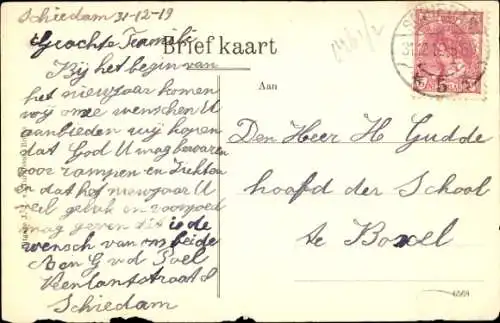 Schiedam 31-12-19
Geachte Familie
Briefkaart
Bij het begin van
het nieuwjaar komen
wij onze wenschen U
aanbieden wij hopen
dat God U mag bewaren
voor rampen en Ziekten
en dat het niewjaar U
veil geluk en voorspoed
mag geven dit is de
wensch van ons beide
A en G v d Poel
straat 8
Schiedam
Aan
Den Heer H Gudde
hoofd der School
te Boxel